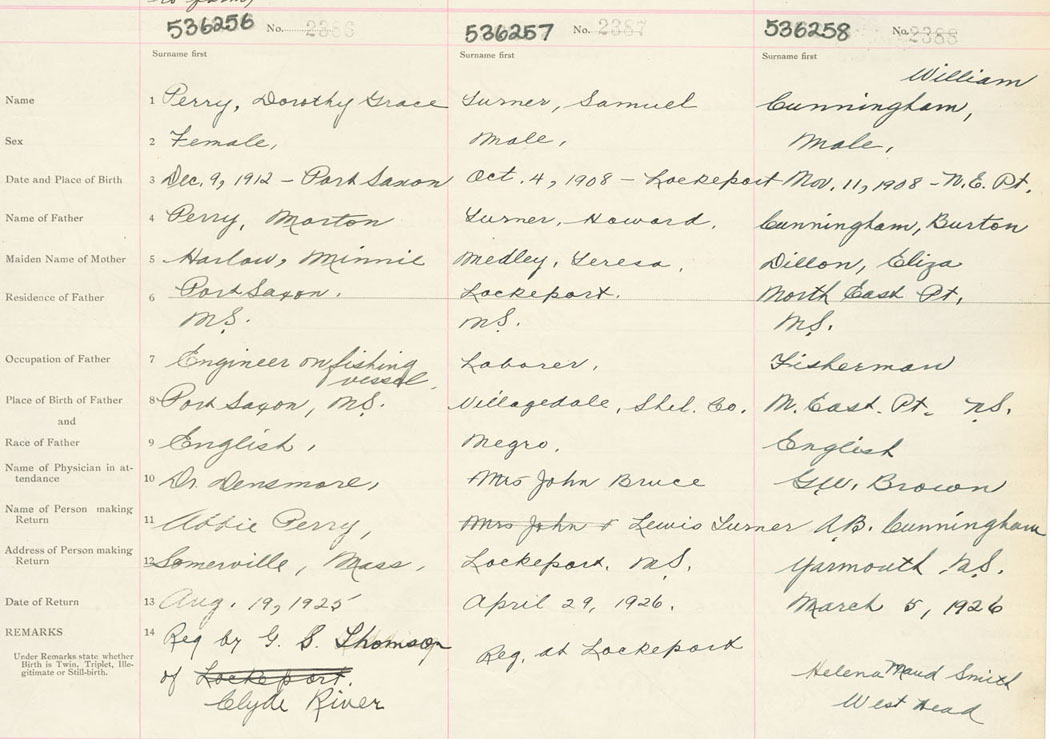 536256 No. 2386 536257 No. 2387 536258 No. 2388
Surname first Surname first Surname first
William
Name 1 Perry, Dorothy Grace Turner, Samuel Cunningham,
Sex 2 Female, Male, Male,
Date and Place of Birth 3 Dec. 9, 1912 - Port Saxon Oct. 4, 1908 - Lockeport Nov. 11, 1908 - N.E. Pt.
Name of Father 4 Perry, Morton Turner, Howard. Cunningham, Burton
Maiden Name of Mother 5 Harlow, Minnie Medley, Teresa. Dillon, Eliza
Residence of Father 6 Port Saxon. Lockeport. North East Pt.
N.S. N.S. N.S.
Occupation of Father 7 Engineer on fishing Laborer, Fisherman
vessel.
Place of Birth of Father 8 Port Saxon, N.S. Villagedale, Shel. Co. N. East. Pt. N.S.
and
Race of Father 9 English, Negro. English
Name of Physician in at-
tendance 10 Dr. Densmore, Mrs John Bruce G.W. Brown
Name of Person making
Return 11 Abbie Perry, Mrs John Lewis Turner A.B. Cunningham
Address of Person making
Return 12 Somerville, Mass. Lockeport. N.S. Yarmouth N.S.
Date of Return 13 Aug. 19, 1925 April 29, 1926. March 5, 1926
REMARKS 14 Reg by G. S. Thomson Reg. at Lockeport
Under Remarks state whether
Birth is Twin, Triplet, Ille-
gitimate or Still-birth.
of Lockeport. Helena Maud Smith
Clyde River West Head